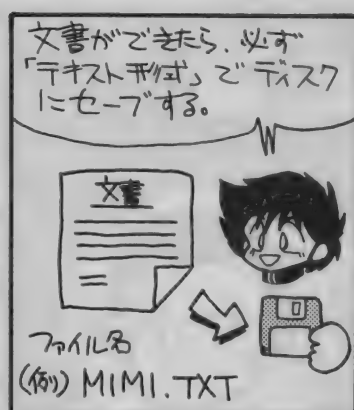 文書ができたら、必ず
「テキスト形式」でディスク
にセーブする。
文書
ファイル名
(例) MIMI.TXT